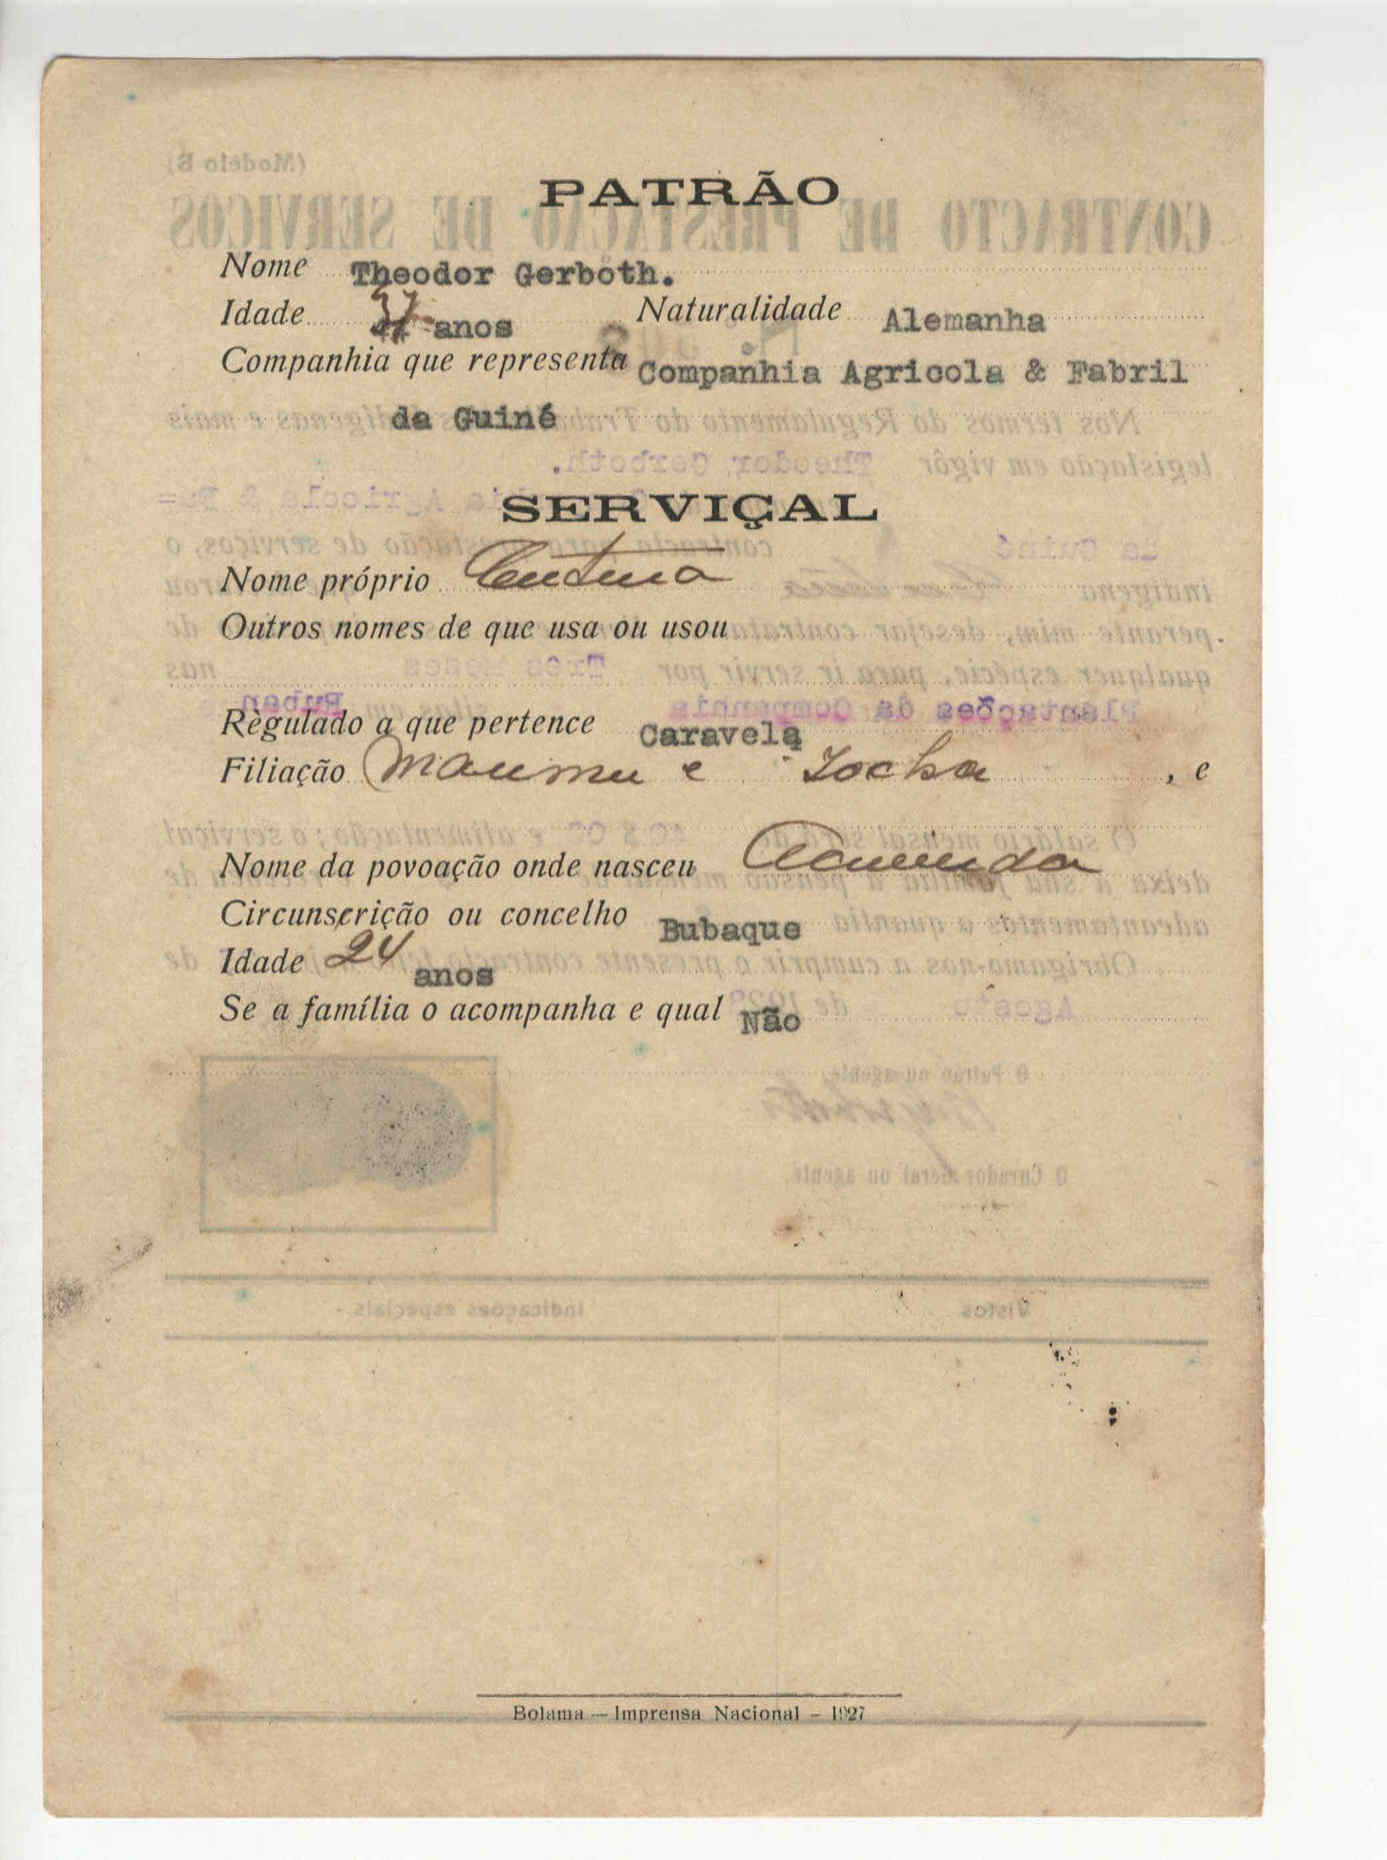 PATRÃO
Nome Theodor Gerboth.
Idade 37 anos Naturalidade Alemanha
Companhia que representa Companhia Agricola & Fabril
da Guiné
SERVIÇAL
Nome próprio
Outros nomes de que usa ou usou
Règulado a que pertence Caravela
Filiação Maumu e Tocha, e
Nome da povoação onde nasceu
Circunscrição ou concelho Bubaque
Idade 24 anos
Se a família o acompanha e qual Não
Bolama — Imprensa Nacional - 1927